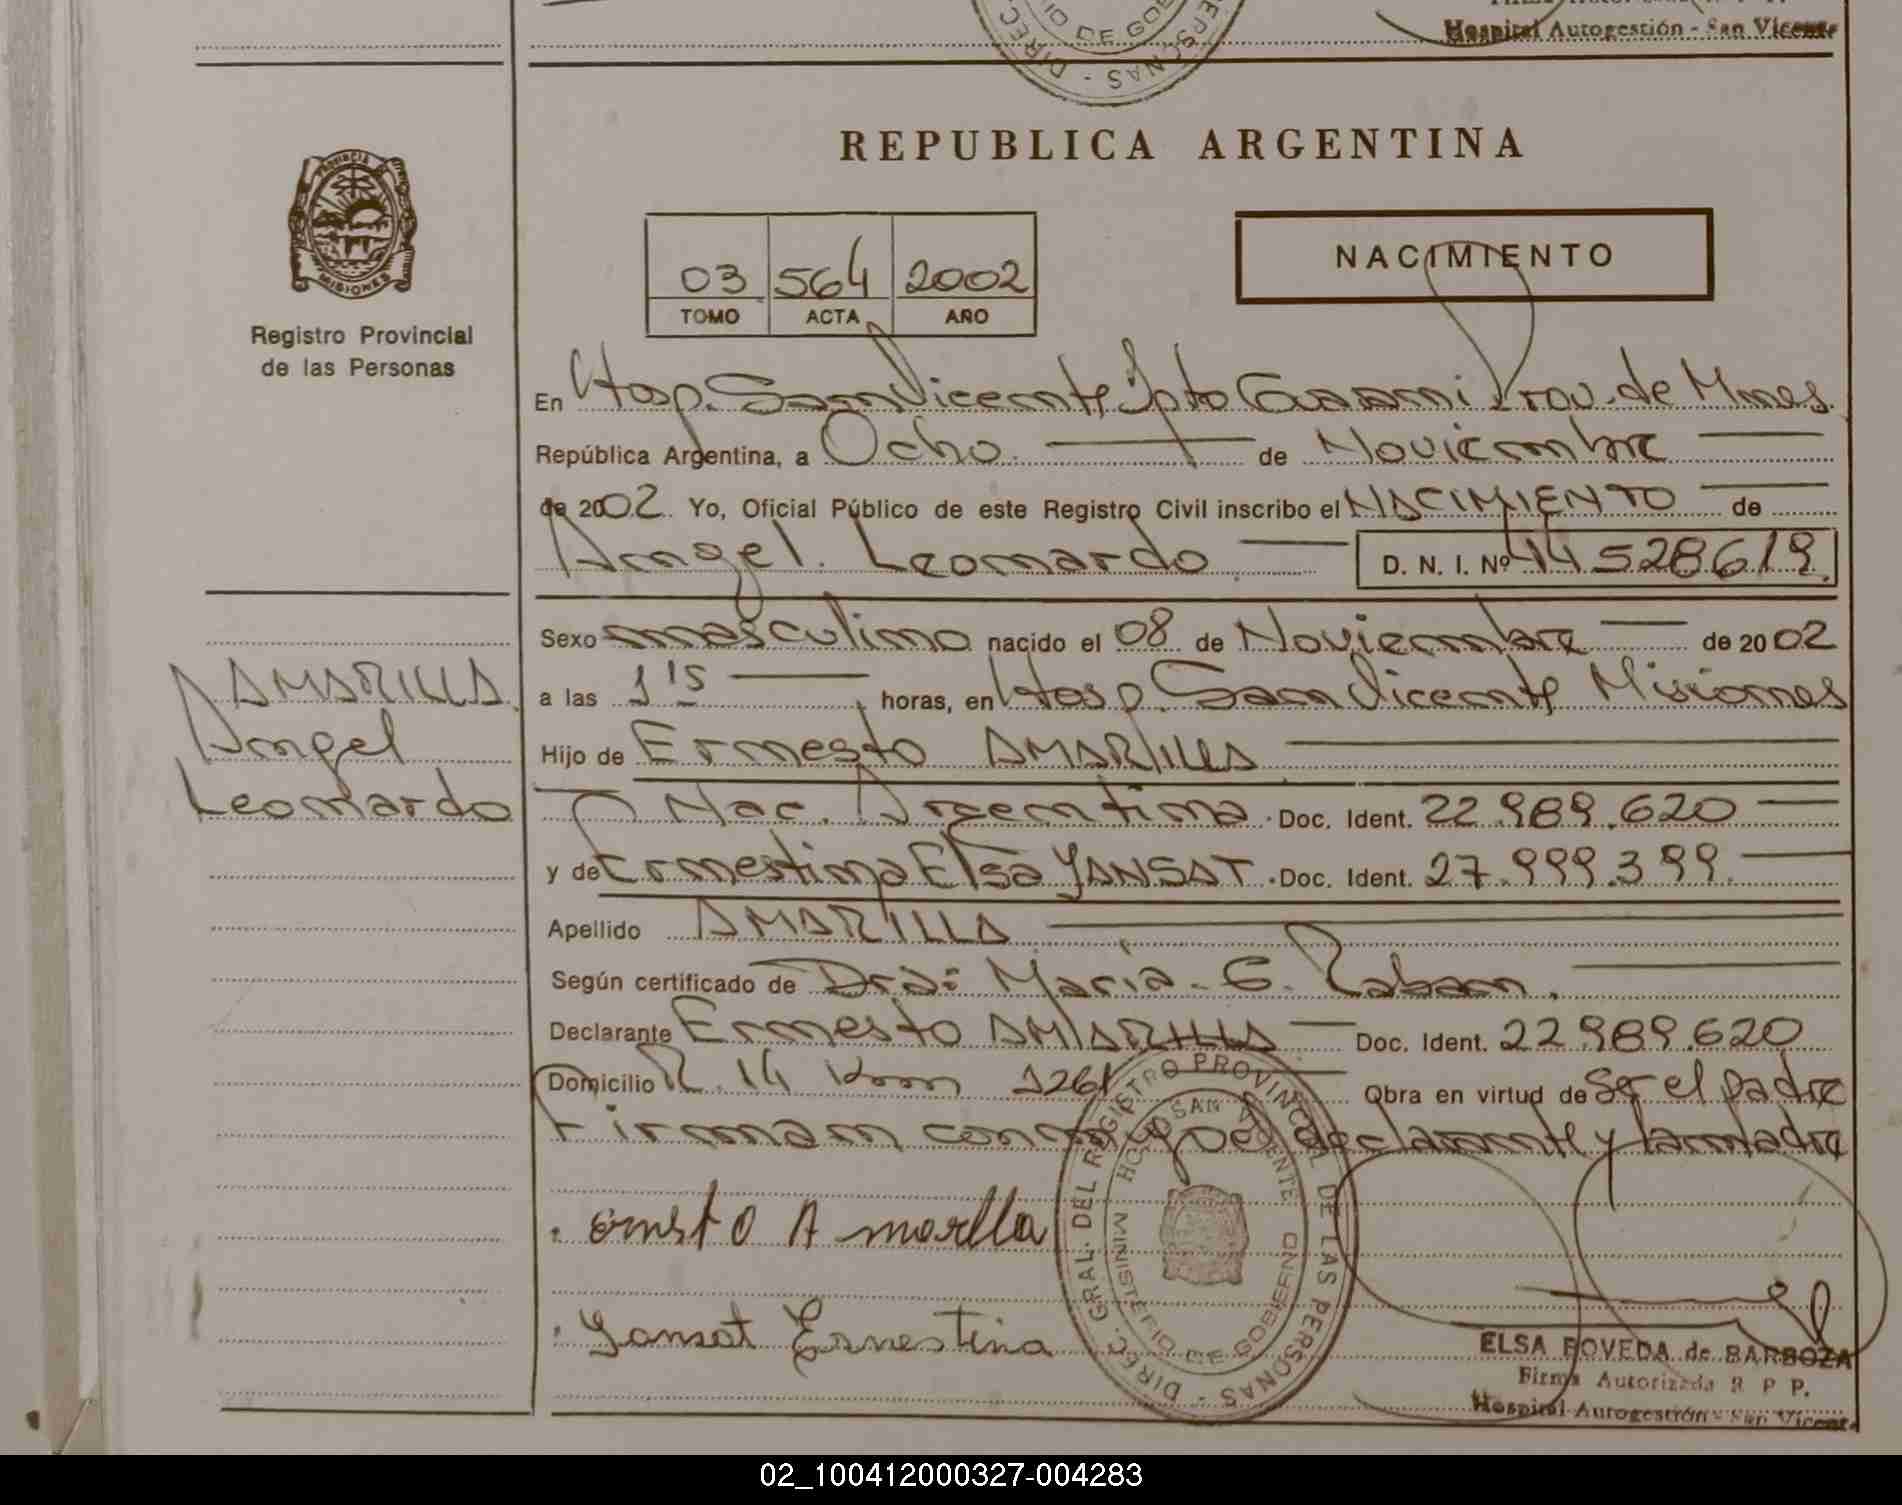 Hospital Autogestión - San Vicente
DIREC. PERSONAS -
DE GOB
REPUBLICA ARGENTINA
PROVINCIA
MISIONES
Registro Provincial
de las Personas
03 564 2002
TOMO ACTA AÑO
NACIMIENTO
En Hosp. San Vicente Dpto Guarani Prov. de Mnes.
República Argentina, a Ocho de Noviembre
de 2002 Yo, Oficial Público de este Registro Civil inscribo el NACIMIENTO de
Angel Leonardo D. N. I. Nº 44528619
Sexo masculino nacido el 08 de Noviembre de 2002
a las 1'15 horas, en Hosp. San Vicente Misiones
Hijo de Ernesto AMARILLA
Nac. Argentina Doc. Ident. 22.989.620
y de Ernestina Elsa YANSAT Doc. Ident. 27.999.399
Apellido AMARILLA
Según certificado de Dra: Maria G.
Declarante Ernesto AMARILLA Doc. Ident. 22.989.620
Domicilio R. 14 Km 1261 Obra en virtud de Ser el padre
Firman conmigo el declarante y la madre
AMARILLA
Angel
Leonardo
Ernsto Amarilla
Yansat Ernestina
DIREC. GRAL. DEL REGISTRO PROVINCIAL DE LAS PERSONAS -
HOSP. SAN VICENTE
MINISTERIO DE GOBIERNO
ELSA POVEDA de BARBOZA
Firma Autorizada R P P.
Hospital Autogestión - San Vicente
02_100412000327-004283